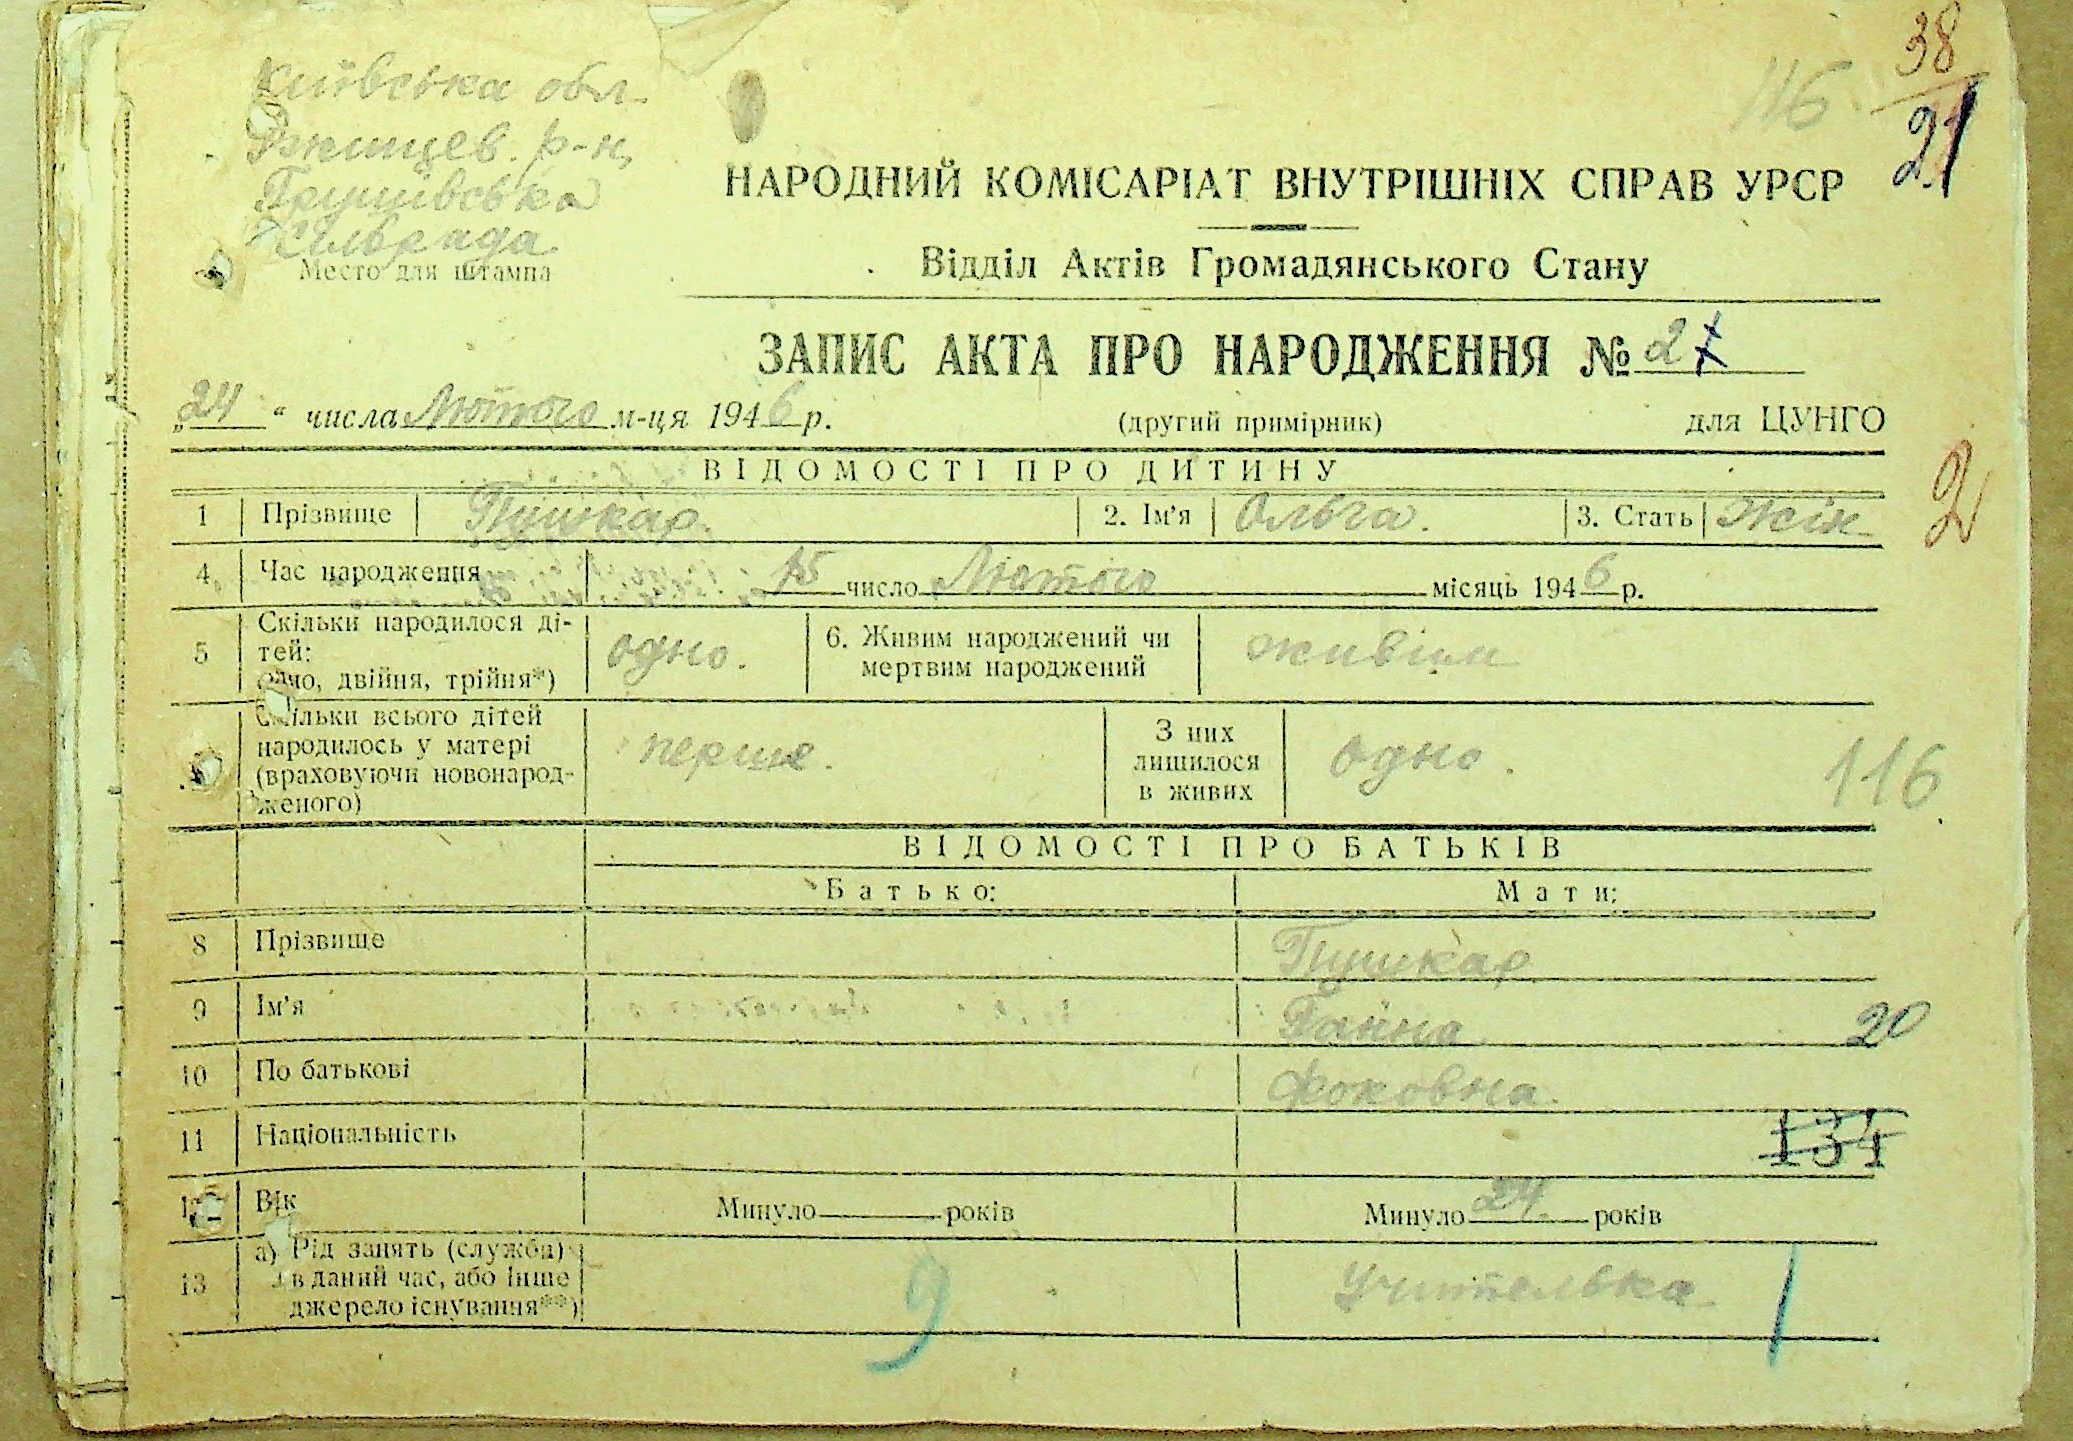 Київська обл.
Ржищев. р-н,
Грушівська
Сільрада
Место для штампа
116
38
21
НАРОДНИЙ КОМІСАРІАТ ВНУТРІШНІХ СПРАВ УРСР
Відділ Актів Громадянського Стану
ЗАПИС АКТА ПРО НАРОДЖЕННЯ №
„24“ числа Лютого м-ця 1946 р. (другий примірник) для ЦУНГО
2
ВІДОМОСТІ ПРО ДИТИНУ
1 Прізвище Пушкар. 2. Ім'я Ольга. 3. Стать Жін
4 Час народження 15 число Лютого місяць 1946 р.
5 Скільки народилося ді-
тей:
одно, двійня, трійня*) одно. 6. Живим народжений чи
мертвим народжений живим
Скільки всього дітей
народилось у матері
(враховуючи новонарод-
женого) перше. З них
лишилося
в живих одно.
116
ВІДОМОСТІ ПРО БАТЬКІВ
Батько: Мати:
8 Прізвище Пушкар
9 Ім'я Ганна
20
10 По батькові Фоковна.
11 Національність
134
12 Вік Минуло років Минуло 24 років
13 а) Рід занять (служби)
в даний час, або інше
джерело існування**) Учителька
9
1